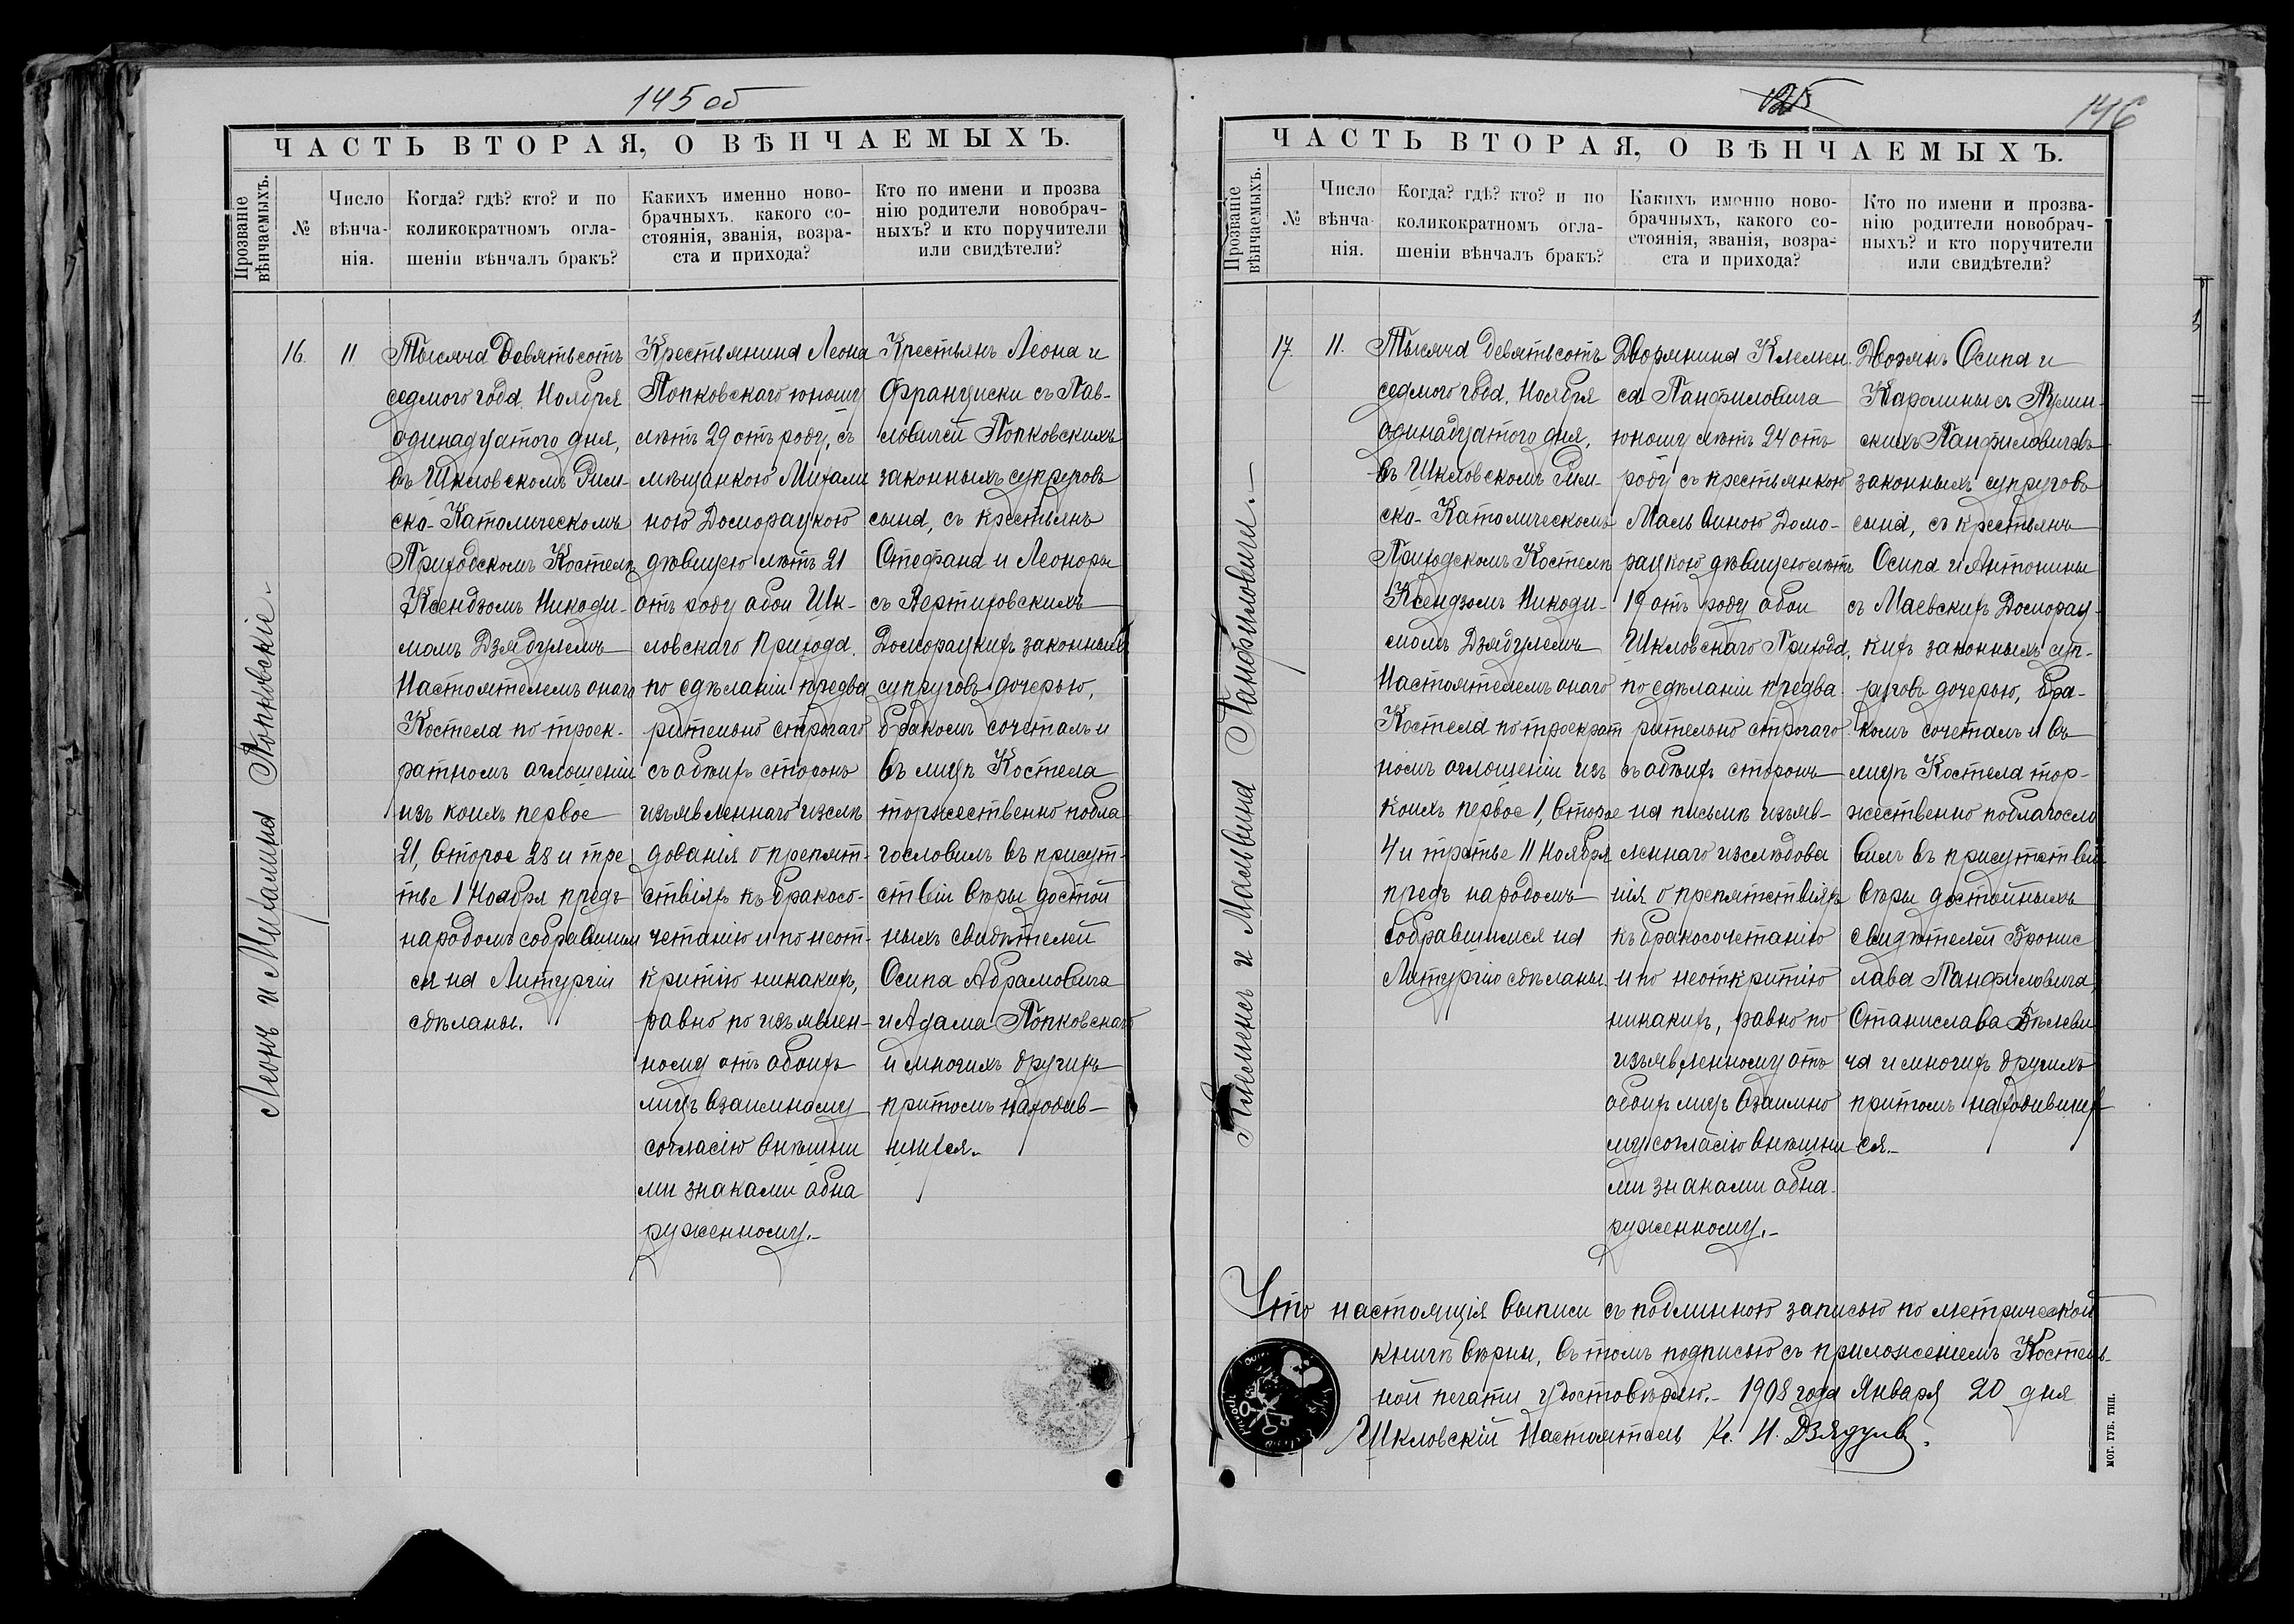 145 об
ЧАСТЬ ВТОРАЯ, О ВѢНЧАЕМЫХЪ.
Прозваніе
вѣнчаемыхъ.
№
Число
вѣнча-
нія.
Когда? гдѣ? кто? и по
коликократномъ огла-
шеніи вѣнчалъ бракъ?
Какихъ именно ново-
брачныхъ. какого со-
стоянія, званія, возра-
ста и прихода?
Кто по имени и прозва
нію родители новобрач-
ныхъ? и кто поручители
или свидѣтели?
Леонъ и Михалина Попковскіе.
16.
11
Тысяча Девятьсотъ
седмого года. Ноября
одинадцатого дня,
въ Шкловскомъ Рим-
ско-Католическомъ
Приходскомъ Костелѣ
Ксендзомъ Никоди-
момъ Дзядулемъ
Настоятелемъ онаго
Костела по троек-
ратномъ оглошеніи
изъ коихъ первое
21, второе 28 и тре
тье 1 Ноября предъ
народомъ собравшим
ся на Литургіи
сдѣланы.
Крестьянина Леона
Попковскаго юношу
лѣтъ 29 отъ роду, съ
мѣщанкою Михали
ною Доморацкою
дѣвицею лѣтъ 21
отъ роду обои Шк-
ловскаго Прихода.
по сдѣланіи предва
рительно строгаго
съ обѣихъ сторонъ
изъявленнаго изслѣ
дованія о препят-
ствіяхъ къ бракосо-
четанію и по неот-
критію никакихъ,
равно по изъявлен-
ному отъ обоихъ
лицъ взаимному
согласію внѣшни
ми знаками обна
руженному.-
Крестьянъ Леона и
Франциски съ Пав-
ловичей Попковскихъ
законныхъ супруговъ
сына, съ крестьянъ
Стефана и Леоноры
съ Вертиховскихъ
Доморацкихъ законныхъ
супруговъ дочерью,
бракомъ сочеталъ и
въ лицѣ Костела
торжественно побла
гословилъ въ присут-
ствіи вѣры достой
ныхъ свидѣтелей
Осипа Абрамовича
и Адама Попковскаго
и многихъ другихъ
притомъ находив-
шихся.-
146
ЧАСТЬ ВТОРАЯ, О ВѢНЧАЕМЫХЪ.
Прозваніе
вѣнчаемыхъ.
№
Число
вѣнча-
нія.
Когда? гдѣ? кто? и по
коликократномъ огла-
шеніи вѣнчалъ бракъ?
Какихъ именно ново-
брачныхъ, какого со-
стоянія, званія, возра-
ста и прихода?
Кто по имени и прозва-
нію родители новобрач-
ныхъ? и кто поручители
или свидѣтели?
Клеменсъ и Мальвина Панфиловичи.-
17.
11.
Тысяча девятьсотъ
седмого года, Ноября
одинадцатого дня,
въ Шкловскомъ Рим-
ско-Католическомъ
Приходскомъ Костелѣ
Ксендзомъ Никоди-
момъ Дзядулемъ
Настоятелемъ онаго
Костела по троекрат
номъ оглошеніи изъ
коихъ первое 1, второе
4 и третье 11 Ноября
предъ народомъ
собравшимся на
Литургію сдѣланы.
Дворянина Клемен.
са Панфиловича
юношу лѣтъ 24 отъ
роду съ крестьянкою
Мальвиною Домо-
рацкою дѣвицею лѣтъ
19 отъ роду обои
Шкловскаго Прихода,
по сдѣланіи предва.
рительно строгаго
съ обѣихъ сторонъ
на письмѣ изъяв-
леннаго изслѣдова
нія о препятствіяхъ
къ бракосочетанію
и по неоткритію
никакихъ, равно по
изъявленному отъ
обоихъ лицъ взаимно
му согласію внѣшни
ми знаками обна.
руженному.-
Дворянъ Осипа и
Каролины съ
скихъ Панфиловичовъ
законныхъ супруговъ
сына, съ крестьянъ
Осипа и Антонины
съ Маевскихъ Доморац-
кихъ законныхъ суп-
руговъ дочерью, бра-
комъ сочеталъ и въ
лицѣ Костела тор-
жественно поблагосло
вилъ въ присутствіи
вѣры достойныхъ
свидѣтелей Бронис
лава Панфиловича,
Станислава Бѣлеви
ча и многихъ другихъ
притомъ находивших
ся.-
Что настоящія выписи съ подлинною записью по метрической
книгѣ вѣрны, въ томъ подписью съ приложеніемъ Костель-
ной печати удостовѣряю.- 1908 года Января 20 дня
Шкловскій Настоятель Кс. Н. Дзядуль.
МОГ. ГУБ. ТИП.